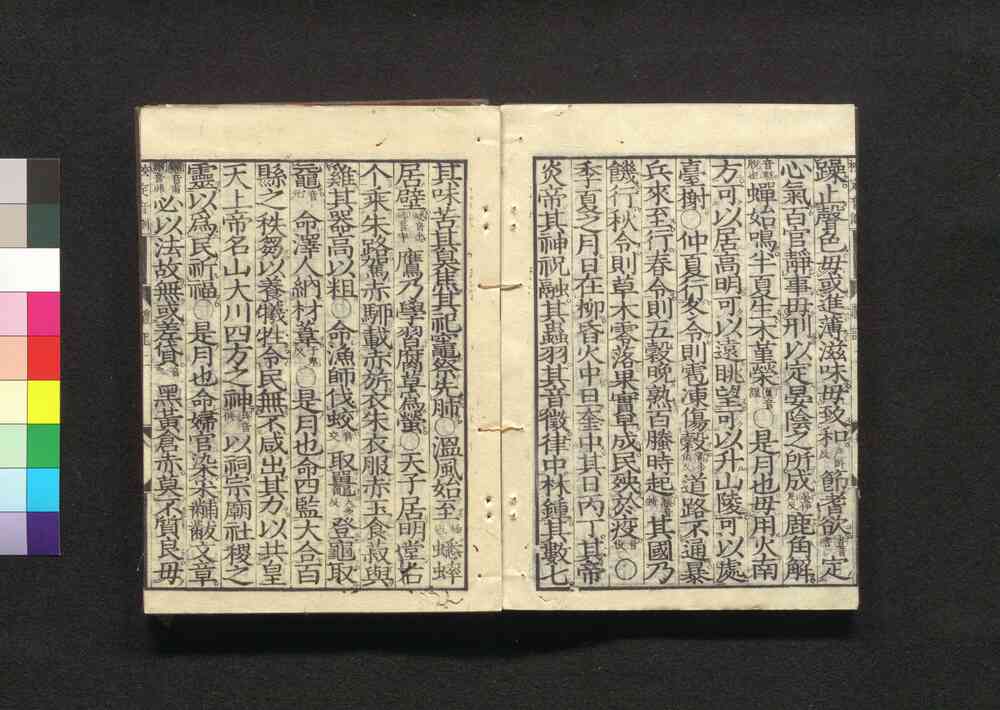 躁止聲色毋或進薄滋味毋致和節耆欲定
心氣百官靜事毋刑以定晏陰之所成鹿角解
蟬始鳴半夏生木堇榮〇是月也毋用火南
方可以居高明可以遠眺望可以升山陵可以處
臺榭〇仲夏行冬令則雹凍傷穀道路不通暴
兵來至行春令則五穀晚熟百螣時起其國乃
饑行秋令則草木零落果實早成民殃於疫〇
季夏之月日在柳昏火中旦奎中其日丙丁其帝
炎帝其神祝融其蟲羽其音徵律中林鍾其數七
其味苦其臭焦其祀竈祭先肺〇溫風始至蟋蟀
居壁鷹乃學習腐草為螢〇天子居明堂右
个乘朱路駕赤駵載赤旂衣朱衣服赤玉食菽與
雞其器高以粗〇命漁師伐蛟取鼉登龜取
黿命澤人納材葦〇是月也命四監大合百
縣之秩芻以養犧牲令民無不咸出其力以共皇
天上帝名山大川四方之神以祠宗廟社稷之
靈以為民祈福〇是月也命婦官染采黼黻文章
必以法故無或差貸黑黃倉赤莫不質良毋